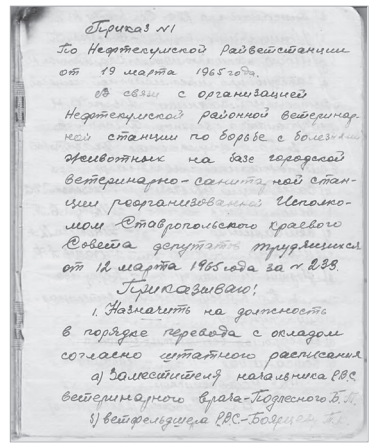 Приказ №1
По Нефтекумской Райветстанции
от 19 марта 1965 года.
В связи с организацией
Нефтекумской районной ветеринар-
ной станции по борьбе с болезнями
животных на базе городской
ветеринарно-санитарной стан-
ции реорганизованной Исполко-
мом Ставропольского краевого
Совета депутатов трудящихся
от 12 марта 1965 года за № 239.
Приказываю!
1. Назначить на должность
в порядке перевода с окладом
согласно штатного расписания
а) Заместителя начальника РВС
ветеринарного врача-Подлесного Б.
б) ветфельдшера РВС-